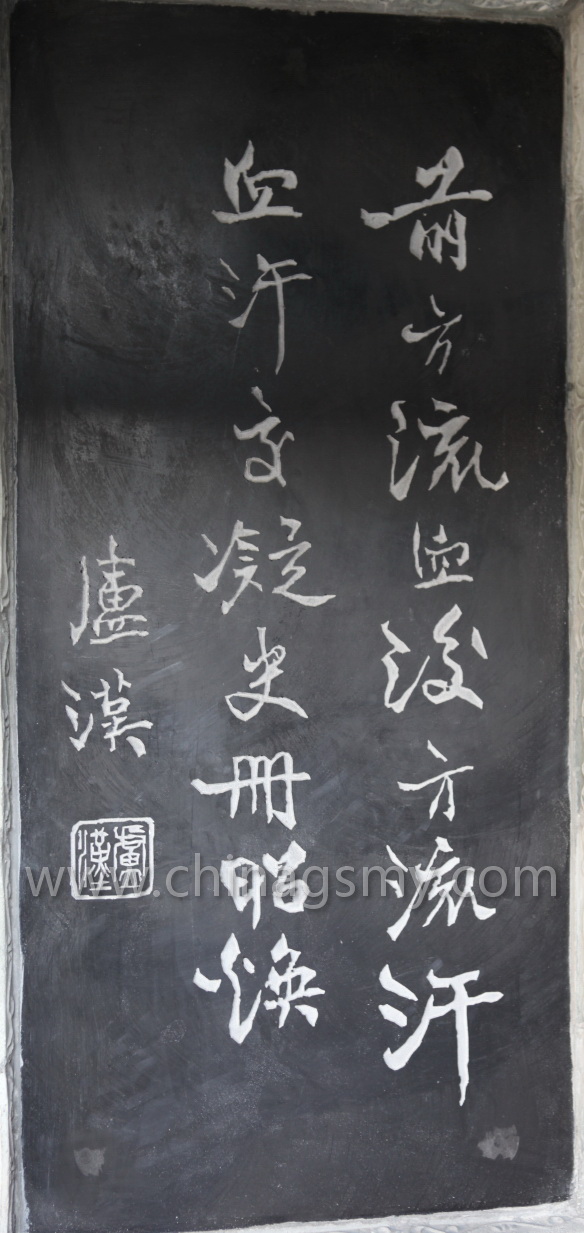 前方流血後方流汗
血汗交凝史冊昭煥
盧漢
盧漢
www.chinagsmy.com